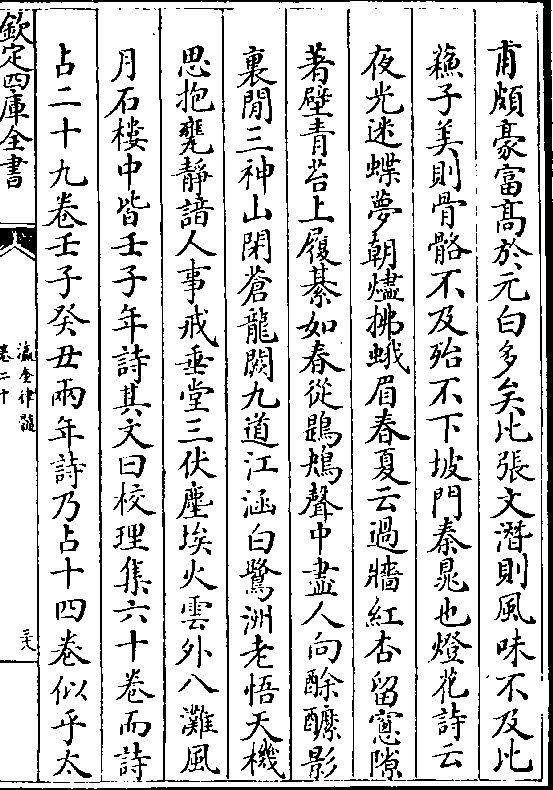 甫頗豪富高於元白多矣比張文潛則風味不及比
蘓子美則骨骼不及殆不下坡門秦晁也燈花詩云
夜光迷蝶夢朝燼拂蛾眉春夏云過牆紅杏留窻隙
著壁青苔上履綦如春從鶗鴂聲中盡人向酴醿影
裏閒三神山閉蒼龍闕九道江涵白鷺洲老悟天機
思抱甕靜諳人事戒垂堂三伏塵埃火雲外八灘風
月石樓中皆壬子年詩其文曰校理集六十卷而詩
占二十九卷壬子癸丑兩年詩乃占十四卷似乎太
欽定四庫全書
瀛奎律髓
卷二十